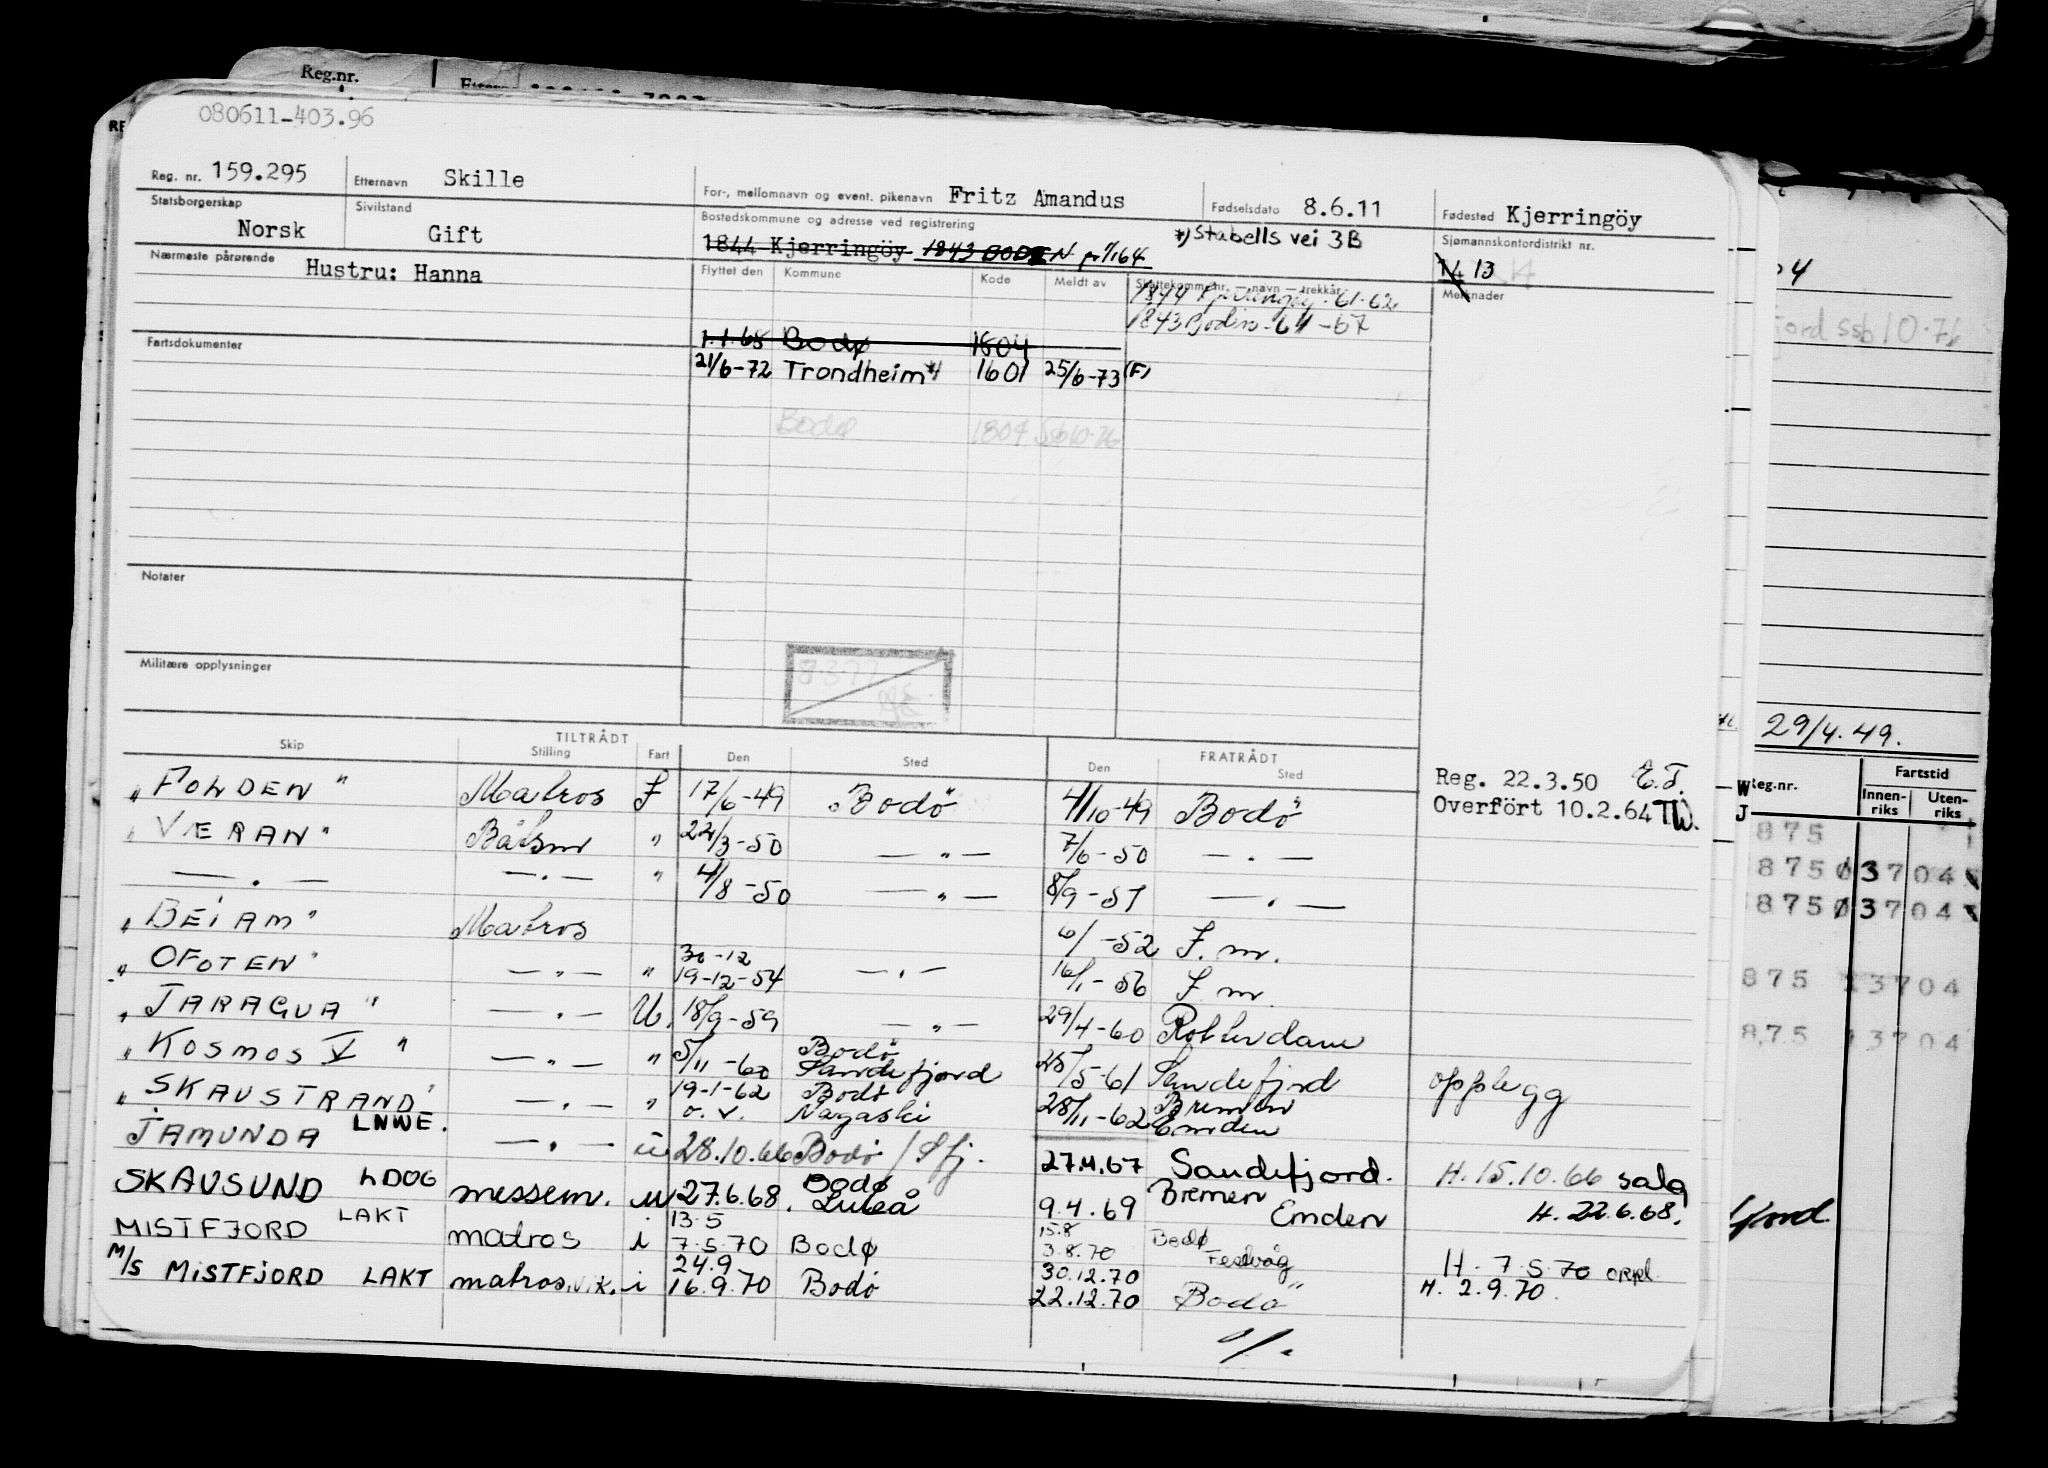 Reg.nr.
080611-403.96
Reg. nr. 159.295 Etternavn Skille For-, mellomnavn og event. pikenavn Fritz Amandus Fødselsdato 8.6.11 Fødested Kjerringöy
Statsborgerskap Norsk Sivilstand Gift Bostedskommune og adresse ved registrering *) Stabells vei 3B Sjømannskontordistrikt nr.
1844 Kjerringöy 1843 BODIN pr 1/1 64 14 13
Nærmeste pårørende Hustru: Hanna Flyttet den Kommune Kode Meldt av Skattekomm.nr. — navn — trekkår Merknader
1844 Kjerringöy - 61-62
1843 Bodin - 64-67
Fartsdokumenter 1.1.68 Bodø 1804
21/6-72 Trondheim *) 1601 25/6-73 (F)
Bodø 1804 Ssb 10-76
Notater
Militære opplysninger
8.3.77
TILTRÅDT FRATRÅDT
Skip Stilling Fart Den Sted Den Sted
"FOLDEN" Matros I 17/6-49 Bodö 4/10-49 Bodö Reg. 22.3.50 E.T.
Overfört 10.2.64 TW.
"VÆRAN" Båtsm " 22/3-50 — " — 7/6-50 — " —
— " — — " — " 4/8-50 — " — 8/9-51 — " —
"BEIAM" Matros 6/ -52 I. m.
"OFOTEN" — " — " 30-12 19-12-54 — " — 16/1-56 I. m.
"JARAGUA" — " — U. 18/9-59 — " — 29/4-60 Rotterdam
"KOSMOS V" — " — " 5/11-60 Bodö Sandefjord 25/5-61 Sandefjord opplegg
"SKAUSTRAND" — " — " 19-1-62 o. v. Bodö Nagaski 28/11-62 Bremen Emden
JAMUNDA LNWE. — " — u 28.10.66 Bodö / Sfj. 27.4.67 Sandefjord. H. 15.10.66 salg
SKAUSUND LDOG messem. u 27.6.68. Bodø Luleå 9.4.69 Bremen Emden H. 22.6.68.
MISTFJORD LAKT matros i 13.5 7.5.70 Bodø 15.8 3.8.70 Bodø Festvåg H. 7.5.70 oppl.
M/S MISTFJORD LAKT matros.v.k. i 24.9 16.9.70 Bodö 30.12.70 22.12.70 Bodö H. 2.9.70.
fjord Ssb 10.76
29/4.49.
Reg.nr. Fartstid
Innen-riks Uten-riks
875
875 3704
875 3704
875 3704
875 3704
fjord